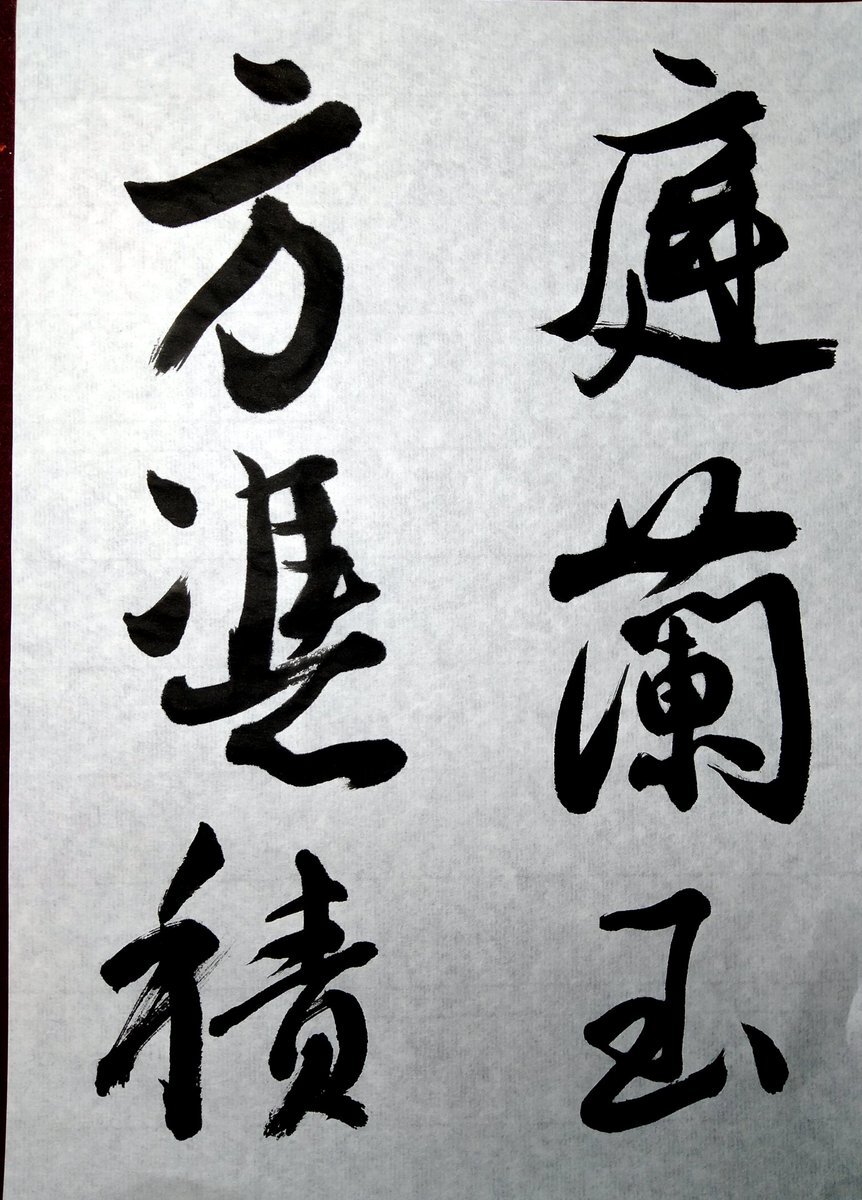 庭蘭玉
方憑積